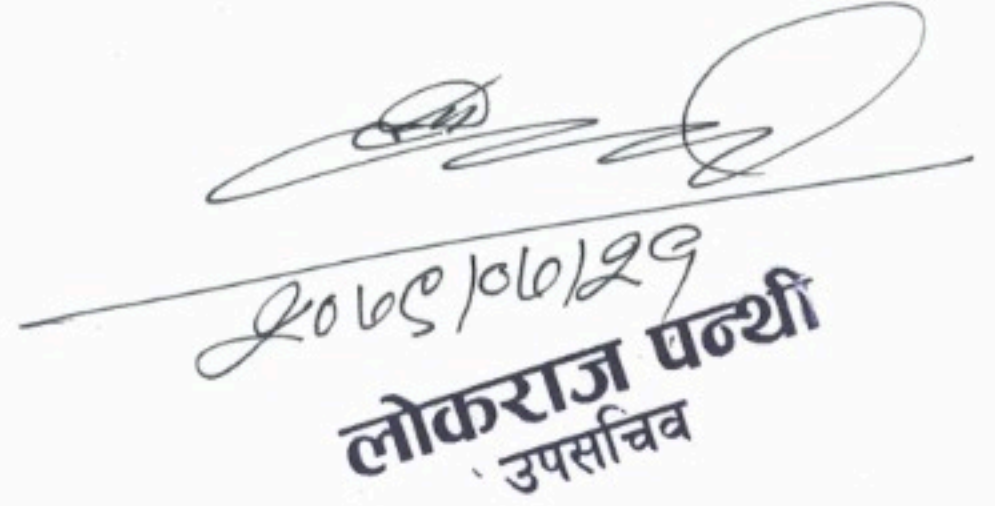 २०७९/०७/२९
लोकराज पन्थी
उपसचिव